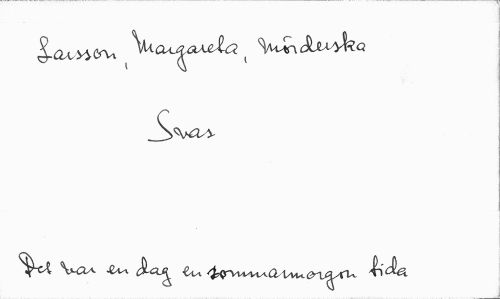 Larsson, Margareta, Mörderska
Svas
Det var en dag en sommarmorgon tida